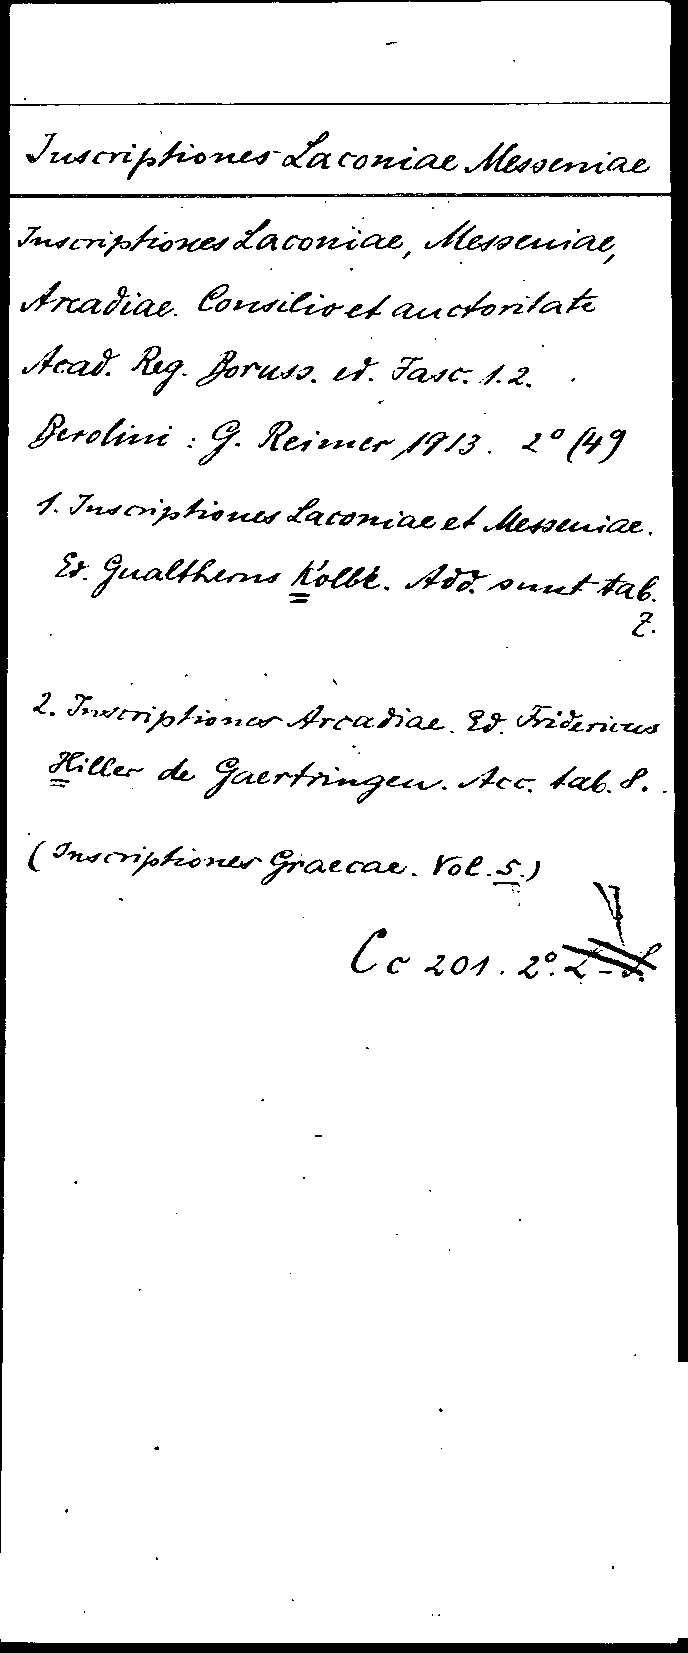 Inscriptiones Laconiae Messeniae
Inscriptiones Laconiae, Messeniae,
Arcadiae. Consilio et auctoritate
Acad. Reg. Boruss. ed. Fasc. 1.2.
Berolini : G. Reimer 1913. 2° (49
1. Inscriptiones Laconiae et Messeniae.
Ed. Gualtherus Kolbe. Add. sunt tab.
7.
2. Inscriptiones Arcadiae. Ed. Fridericus
Hiller de Gaertringen. Acc. tab. 8.
(Inscriptiones Graecae. Vol. 5.)
Cc 201. 2°.